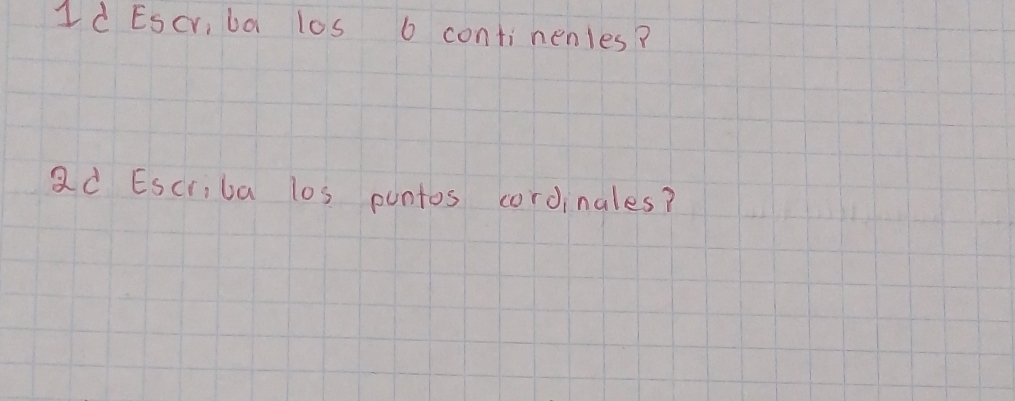 1 ¿ Escriba los 6 continentes?
2 ¿ Escriba los puntos cordinales?